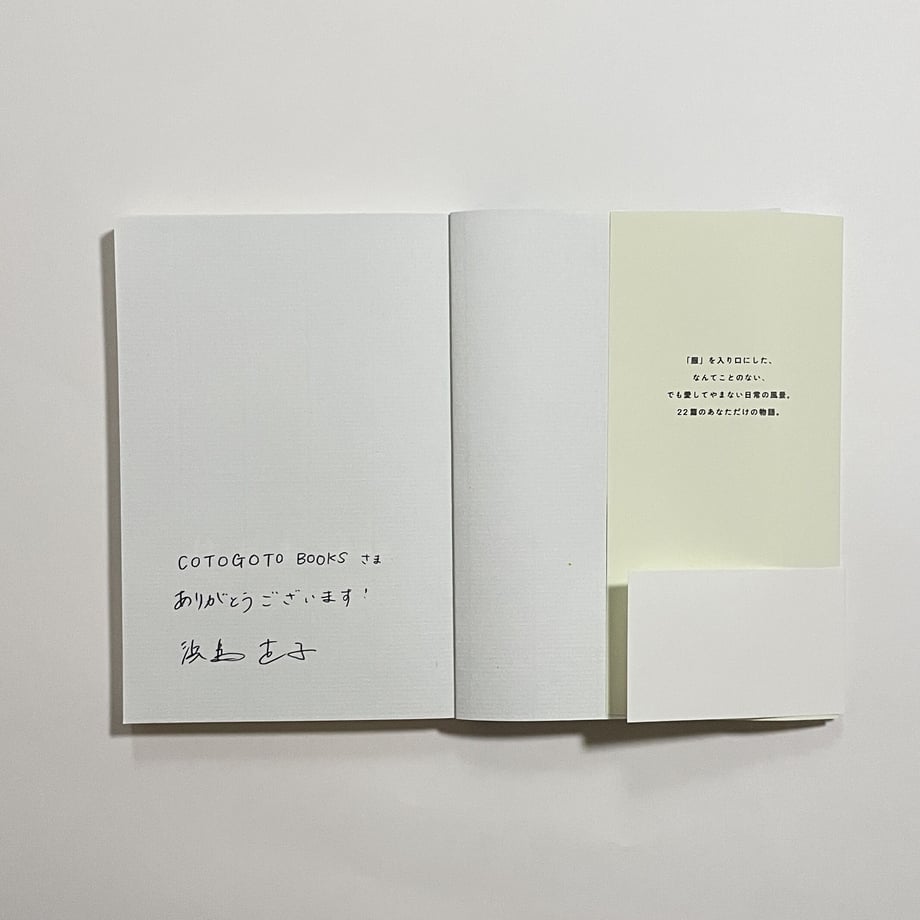 COTOGOTO BOOKS さま
ありがとうございます！
浜島 直子
「服」を入り口にした、
なんてことのない、
でも愛してやまない日常の風景。
22篇のあなただけの物語。